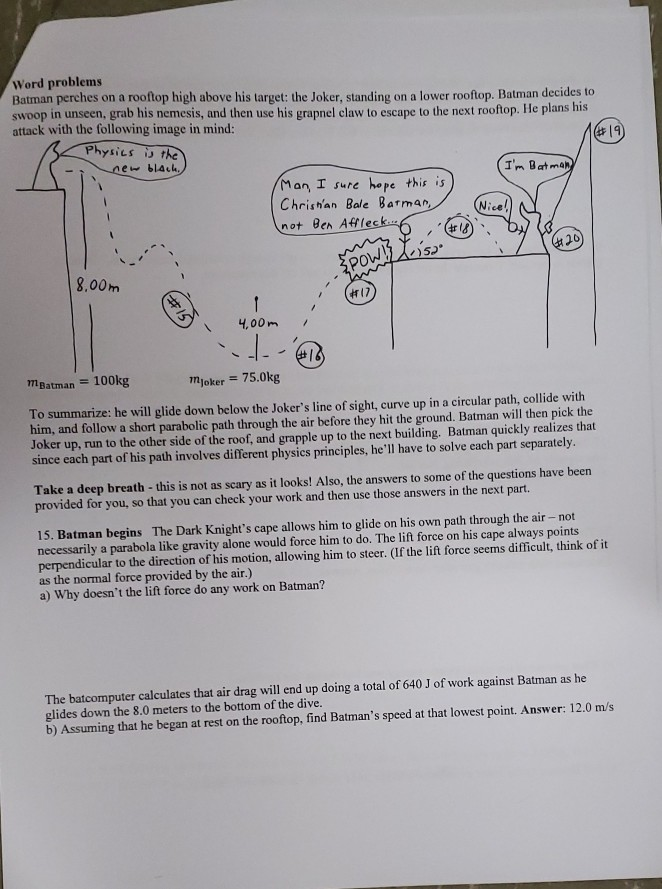 Word problems
Batman perches on a rooftop high above his target: the Joker, standing on a lower rooftop. Batman decides to
swoop in unseen, grab his nemesis, and then use his grapnel claw to escape to the next rooftop. He plans his
attack with the following image in mind:
#19
Physics is the
new black.
I'm Batman
Man, I sure hope this is
Christian Bale Batman,
not Ben Affleck...
Nice!
#18
#20
POW!
52°
8.00m
#17
#15
4.00m
#16
mBatman = 100kg
mJoker = 75.0kg
To summarize: he will glide down below the Joker's line of sight, curve up in a circular path, collide with
him, and follow a short parabolic path through the air before they hit the ground. Batman will then pick the
Joker up, run to the other side of the roof, and grapple up to the next building. Batman quickly realizes that
since each part of his path involves different physics principles, he'll have to solve each part separately.
Take a deep breath - this is not as scary as it looks! Also, the answers to some of the questions have been
provided for you, so that you can check your work and then use those answers in the next part.
15. Batman begins The Dark Knight's cape allows him to glide on his own path through the air – not
necessarily a parabola like gravity alone would force him to do. The lift force on his cape always points
perpendicular to the direction of his motion, allowing him to steer. (If the lift force seems difficult, think of it
as the normal force provided by the air.)
a) Why doesn't the lift force do any work on Batman?
The batcomputer calculates that air drag will end up doing a total of 640 J of work against Batman as he
glides down the 8.0 meters to the bottom of the dive.
b) Assuming that he began at rest on the rooftop, find Batman's speed at that lowest point. Answer: 12.0 m/s